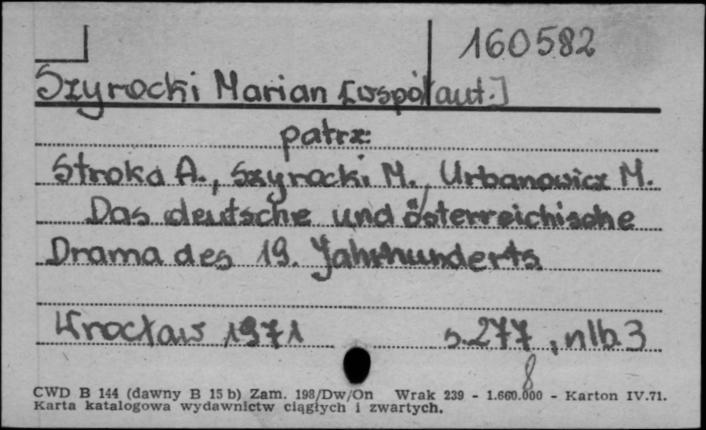 160582
Szyrocki Marian [współaut.]
patrz:
Stroka A., Szyrocki M., Urbanowicz M.
Das deutsche und österreichische
Drama des 19. Jahrhunderts
Wrocław 1971 s. 277, nlb. 3
8
CWD B 144 (dawny B 15 b) Zam. 198/Dw/On Wrak 239 - 1.660.000 - Karton IV.71.
Karta katalogowa wydawnictw ciągłych i zwartych.